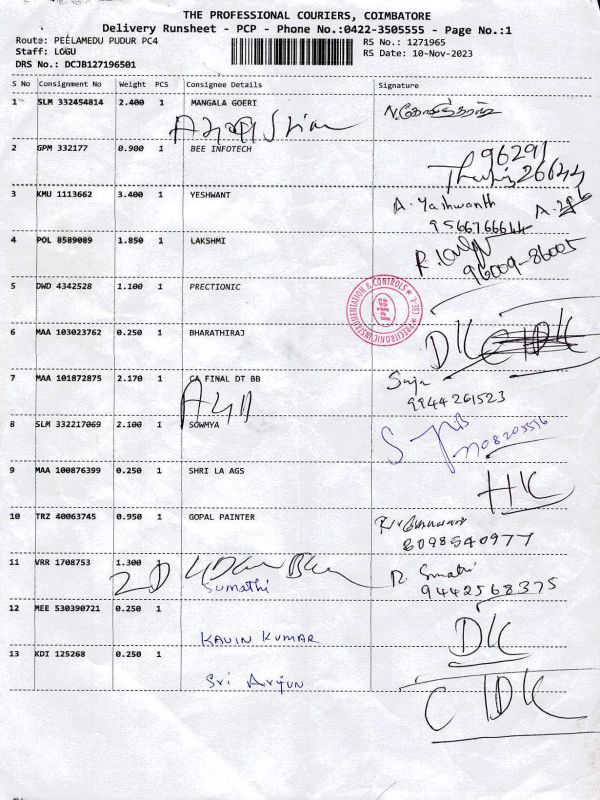 THE PROFESSIONAL COURIERS, COIMBATORE
Delivery Runsheet - PCP - Phone No.:0422-3505555 - Page No.:1
Route: PEELAMEDU PUDUR PC4
RS No.: 1271965
Staff: LOGU
RS Date: 10-Nov-2023
DRS No.: DCJB127196501
S No Consignment No Weight PCS Consignee Details Signature
1 SLM 332454814 2.400 1 MANGALA GOERI
2 GPM 332177 0.900 1 BEE INFOTECH
96291
26644
3 KMU 1113662 3.400 1 YESHWANT
A. Yashwanth
9566766644
4 POL 8589089 1.850 1 LAKSHMI
96009-86005
5 DWD 4342528 1.100 1 PRECTIONIC
PRECITRONIC INSTRUMENTATION & CONTROLS
6 MAA 103023762 0.250 1 BHARATHIRAJ
DK
7 MAA 101872875 2.170 1 CA FINAL DT BB
Suja
9944261523
8 SLM 332217069 2.100 1 SOWMYA
9 MAA 100876399 0.250 1 SHRI LA AGS
HK
10 TRZ 40063745 0.950 1 GOPAL PAINTER
8098540977
11 VRR 1708753 1.300
Sumathi
R Sumathi
9442568375
12 MEE 530390721 0.250 1
KAVIN KUMAR
DK
13 KDI 125268 0.250 1
Sri Arjun